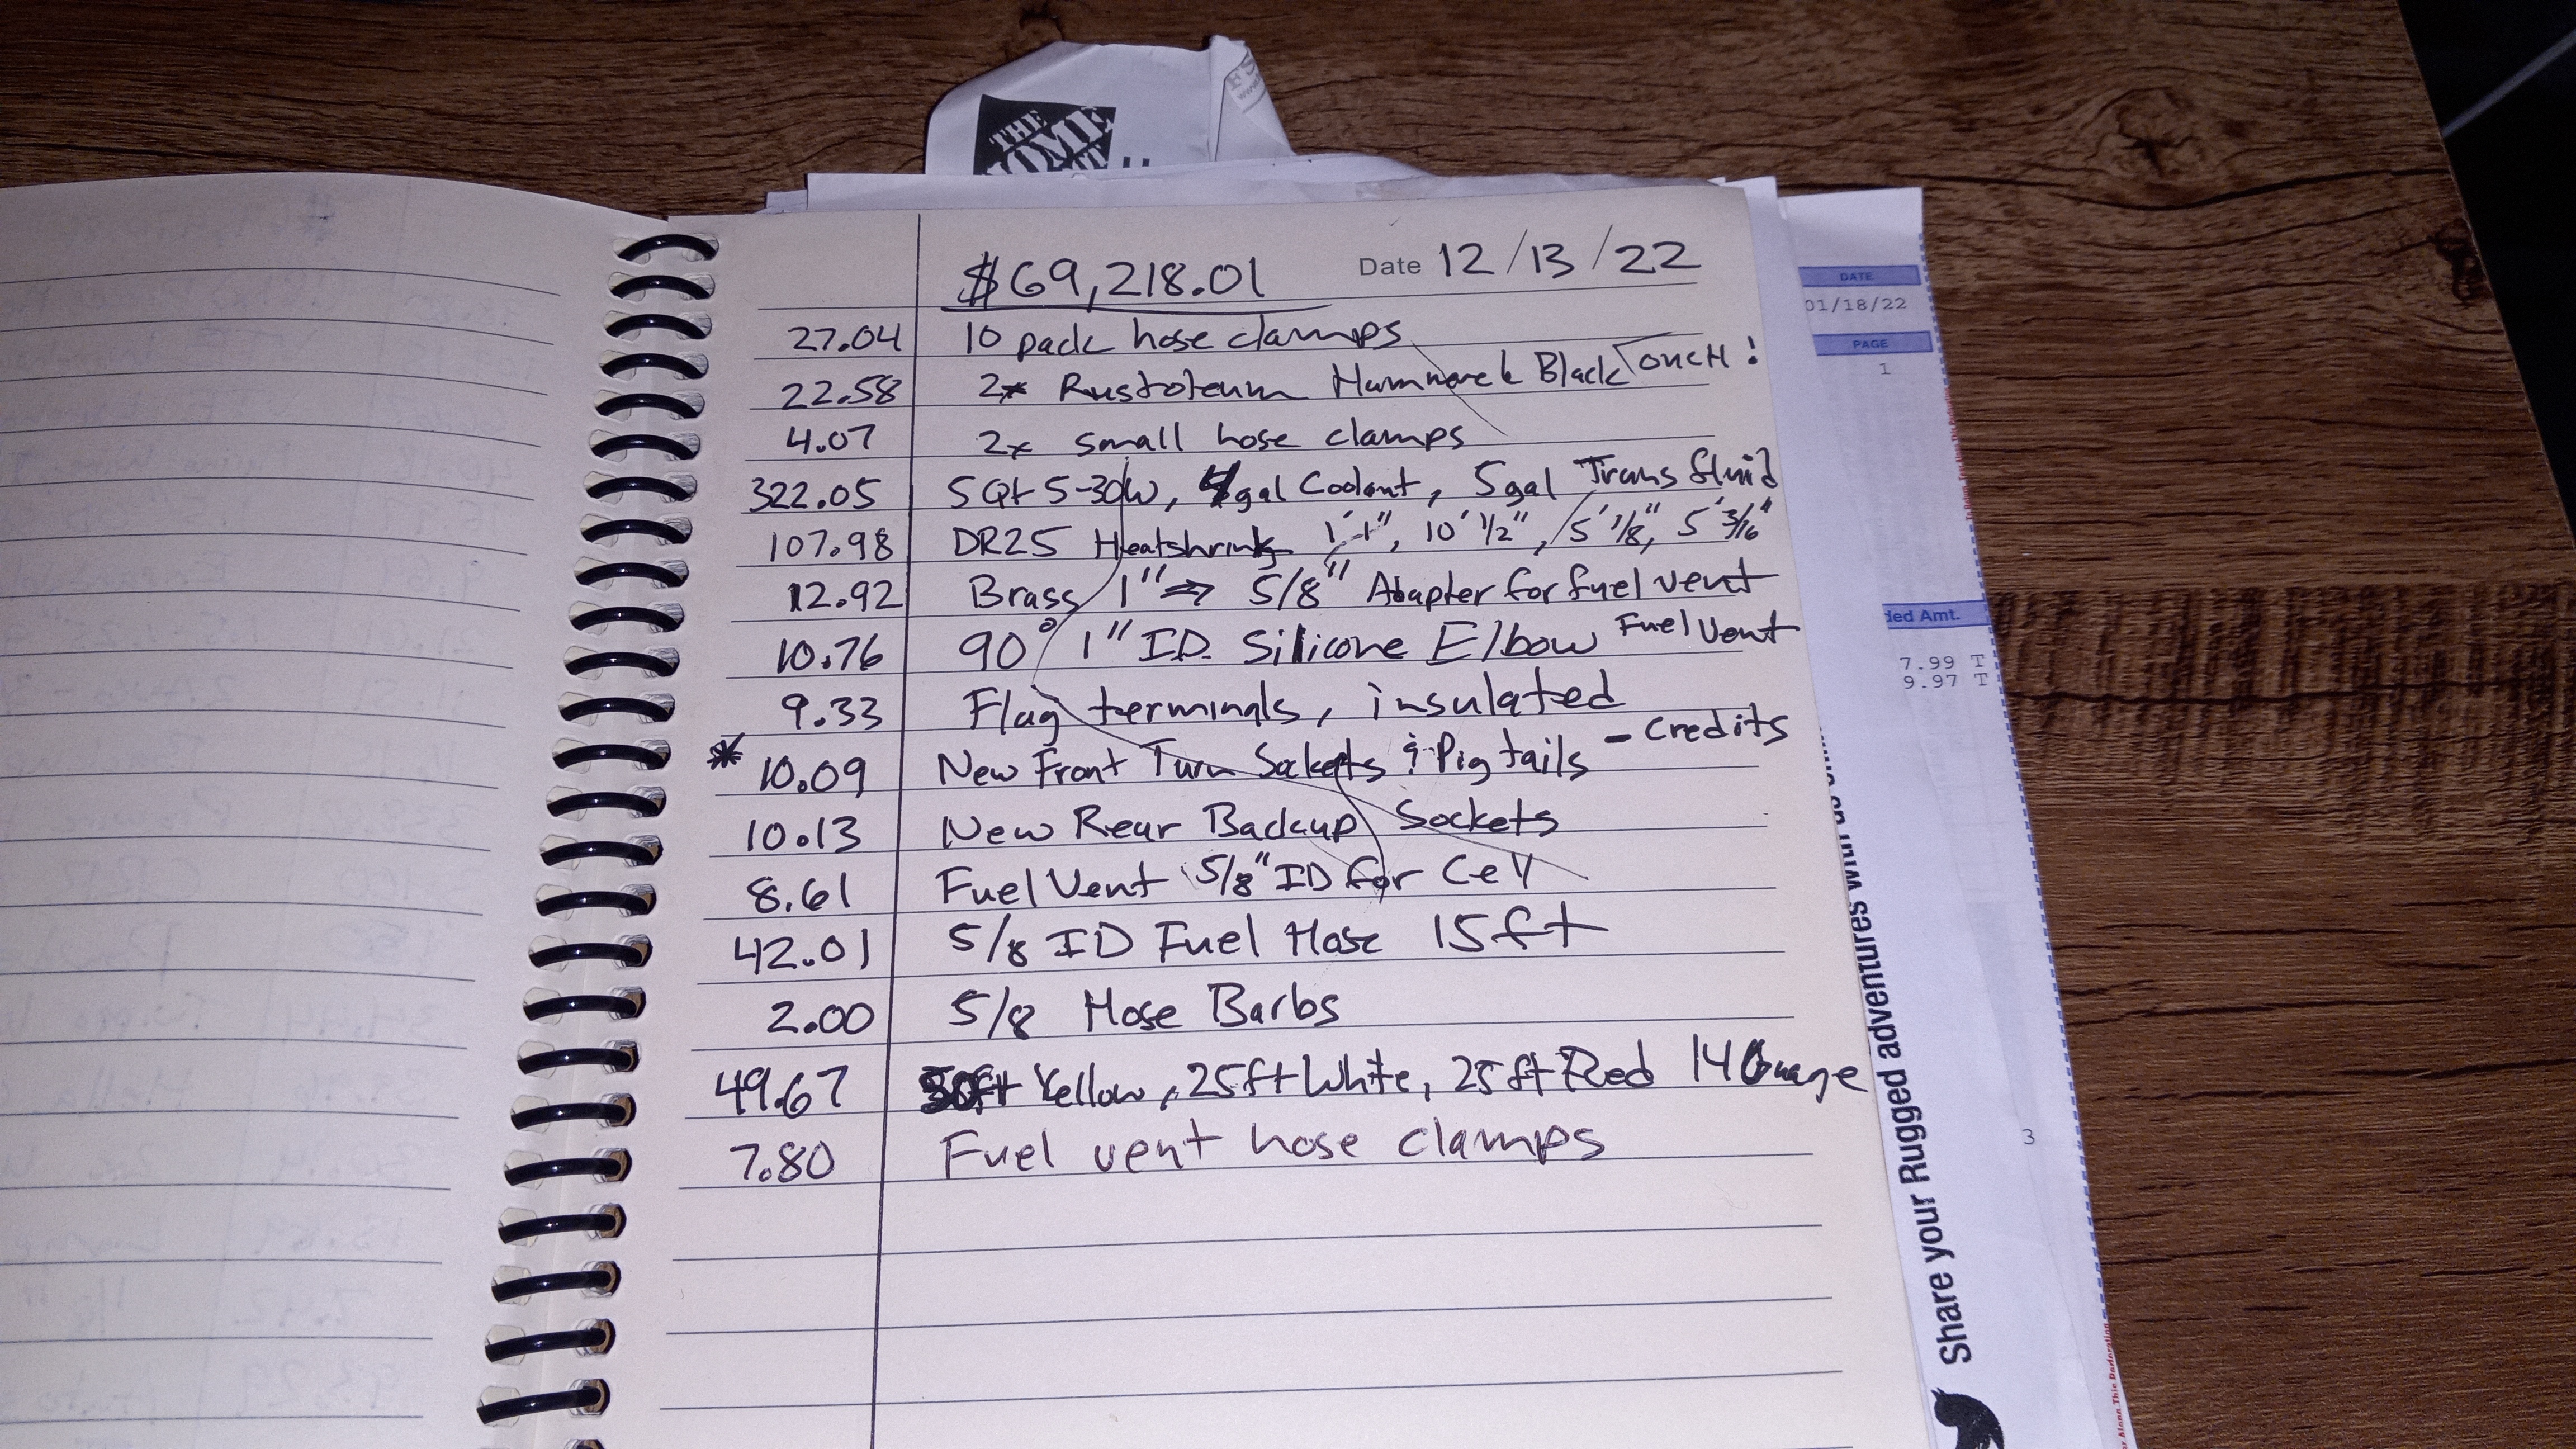 THE
HOME
$69,218.01 Date 12/13/22
27.04 10 pack hose clamps
22.58 2x Rustoleum Hammered Black OUCH!
4.07 2x small hose clamps
322.05 5Qt 5-30W, 4gal Coolant, 5gal Trans fluid
107.98 DR25 Heatshrink 1' 1", 10' 1/2", 5' 1/8", 5' 3/16"
12.92 Brass 1" ⇒ 5/8" Adapter for fuel vent
10.76 90° 1" I.D. Silicone Elbow Fuel Vent
9.33 Flag terminals, insulated
* 10.09 New Front Turn Sockets & Pigtails - Credits
10.13 New Rear Backup Sockets
8.61 Fuel Vent 5/8" ID for Cell
42.01 5/8 ID Fuel Hose 15ft
2.00 5/8 Hose Barbs
49.67 50ft Yellow, 25ft White, 25ft Red 14 Guage
7.80 Fuel vent hose clamps
DATE
01/18/22
PAGE
1
ded Amt.
7.99 T
9.97 T
3
Share your Rugged adventures with us